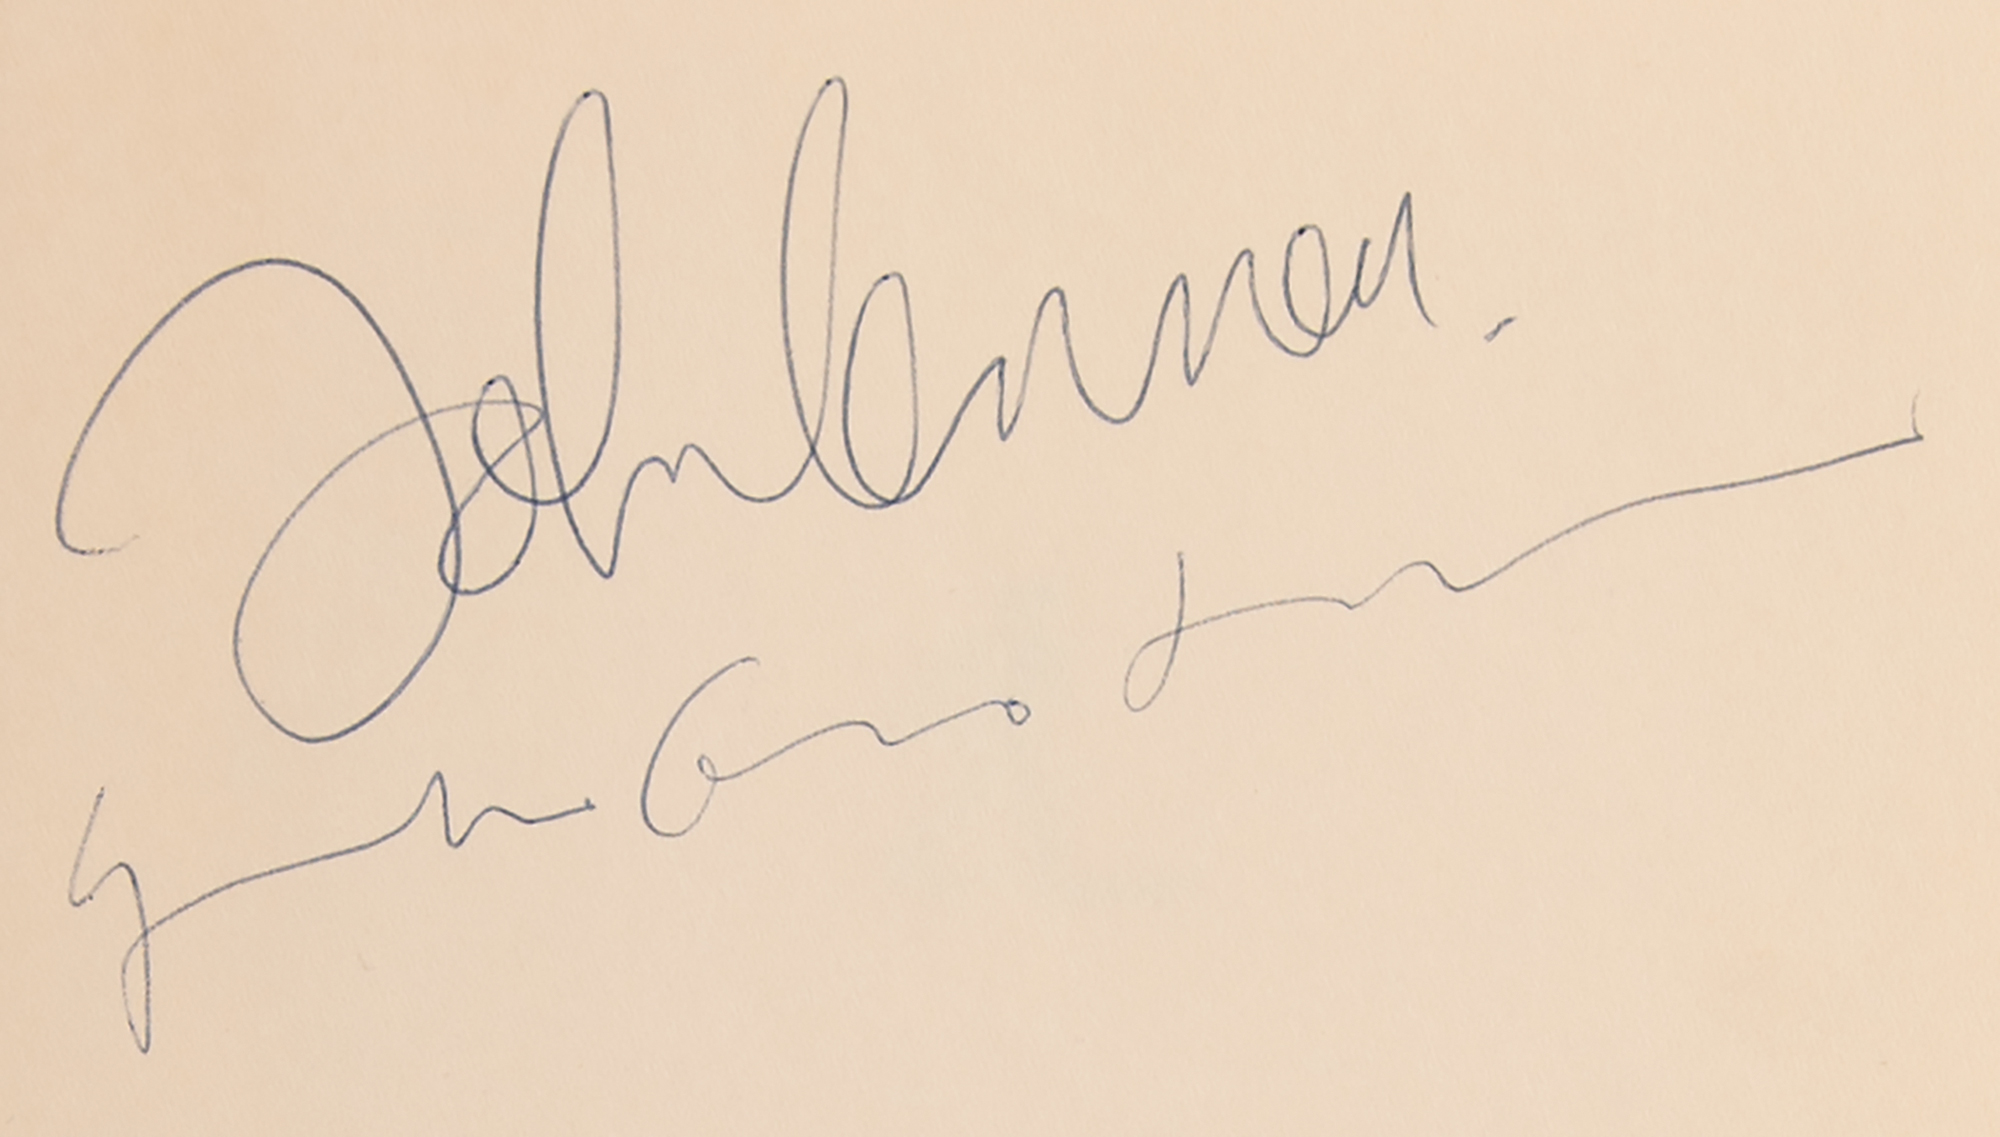 John Lennon.
Yoko Ono Lennon